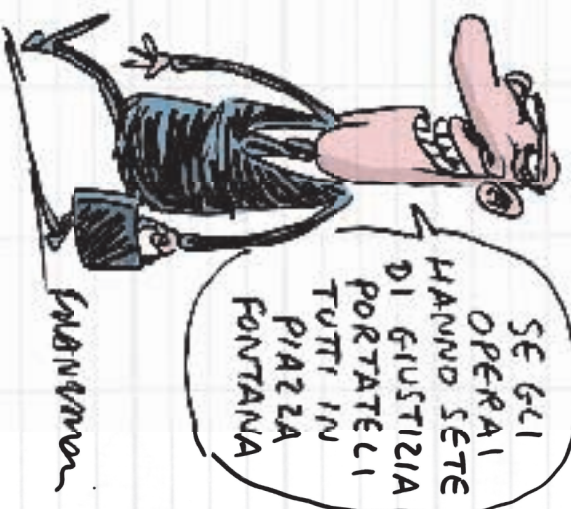 SE GLI
OPERAI
HANNO SETE
DI GIUSTIZIA
PORTATELI
TUTTI IN
PIAZZA
FONTANA